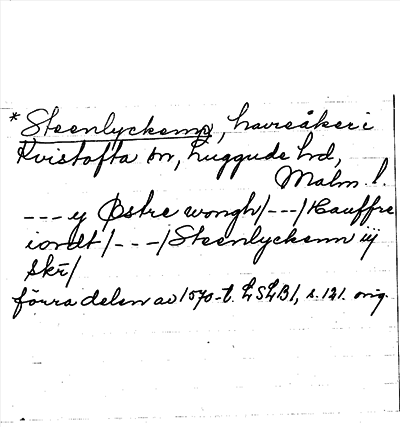 * Steenlyckenn, havreåker i
Kvistofta sn, Luggude hd,
Malm. l.
--- y Østre wongh/---/Hauffre
iordt/---/Steenlyckenn iij
skr/
förra delen av 1570-t. LSLB1, s. 121. orig.